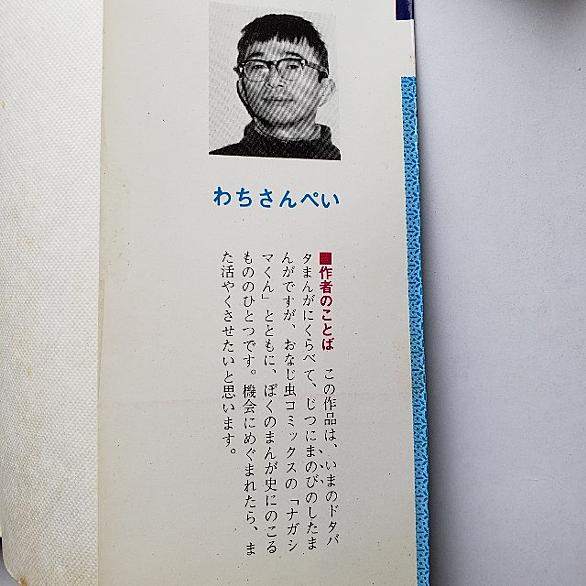 わちさんぺい
■作者のことば　この作品は、いまのドタバ
タまんがにくらべて、じつにまのびのしたま
んがですが、おなじ虫コミックスの「ナガシ
マくん」とともに、ぼくのまんが史にのこる
もののひとつです。機会にめぐまれたら、ま
た活やくさせたいと思います。